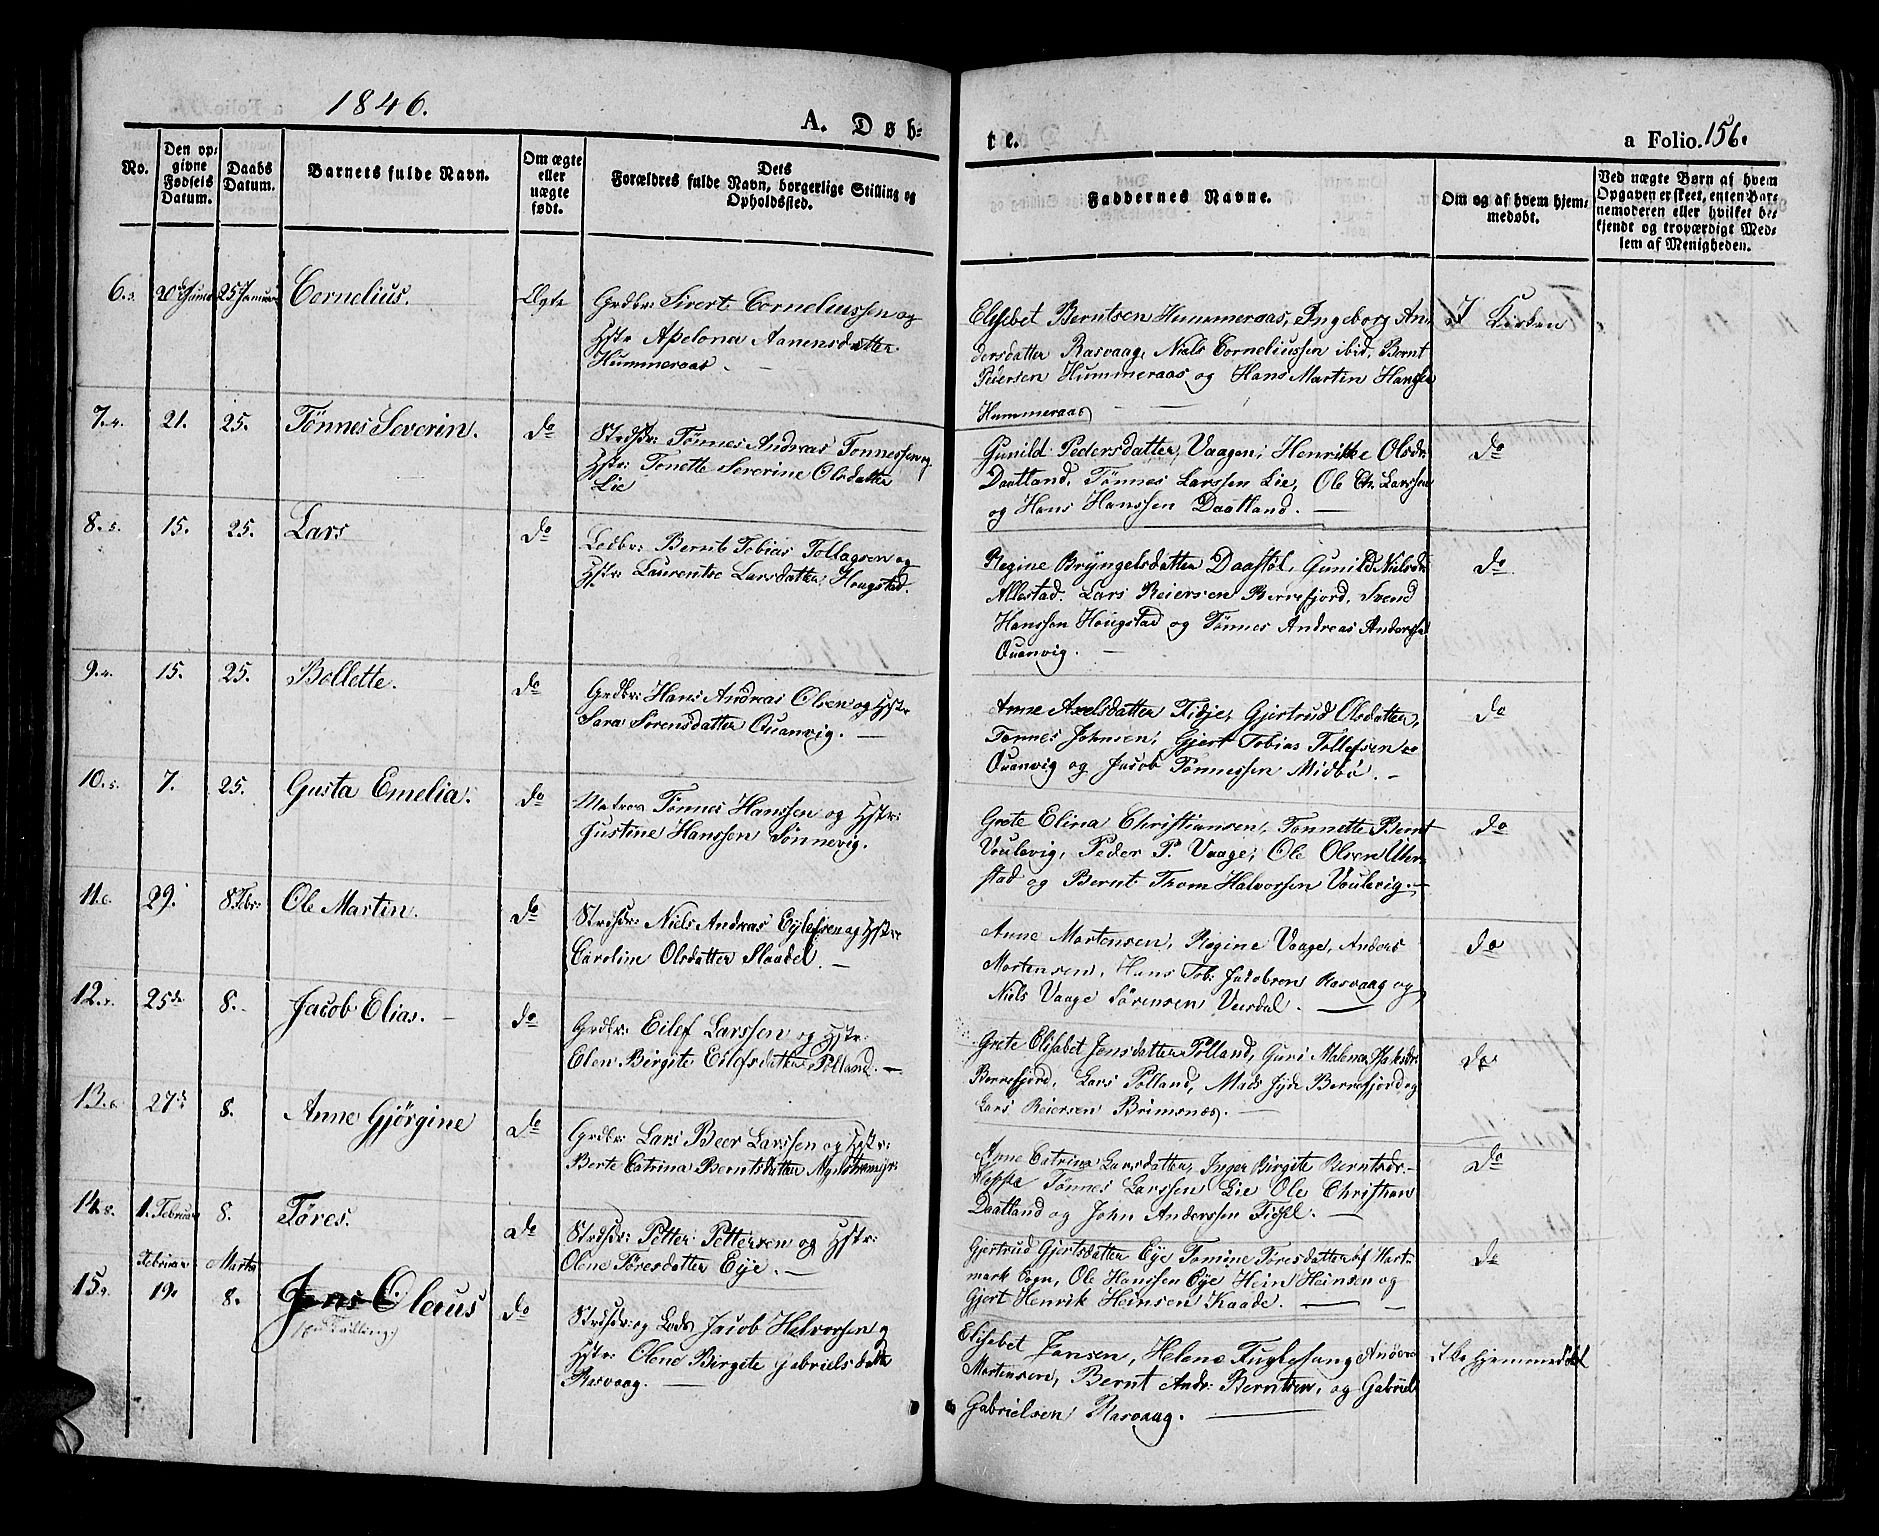 1846.
A. Døb-
te.
a Folio. 156.
No.
Den op-
givne
Fødsels
Datum.
Daabs
Datum.
Barnets fulde Navn.
Om ægte
eller
uægte
født.
Dets
Forældres fulde Navn, borgerlige Stilling og
Opholdssted.
Faddernes Navne.
Om og af hvem hjem-
medøbt.
Ved uægte Børn af hvem
Opgaven er skeet, enten Bar-
nemoderen eller hvilket be-
kjendt og troværdigt Med-
lem af Menigheden.
6. 25 Januar Cornelius. Ægte
Grdbr: Sivert Corneliussen og
Hstr Apelona Aanensdatter
Hummeraas
Elisebet Berntsen Hummeraas, Ingeborg An-
dersdatter Rasvaag, Niels Corneliussen ibid, Bernt
Peiersen Hummeraas og Hans Martin Hansen
Hummeraas
I Kirken
7. 21. 25. Tönnes Severin. do
Strdsr: Tönnes Andreas Tonnessen og
Hstr: Tonette Severine Olsdatter
Lie
Gunild Pedersdatter, Vaagen, Henrikke Olsdr
Daatland, Tönnes Larssen Lie, Ole Chr. Larssen
og Hans Hanssen Daatland.
do
8. 15. 25. Lars do
Ledbr: Bernt Tobias Tollagsen og
Hstr: Laurentse Larsdatter Hougstad.
Regine Bryngelsdatter Daastöl, Gunild Nielsdr
Allestad. Lars Reiersen Berrefjord, Svend
Hanssen Hougstad og Tönnes Andreas Anderssen
Quanvig.
do
9. 15. 25. Bollette. do
Grdbr: Hans Andreas Olsen og Hstr
Sara Sorensdatter Quanvig.
Anne Axelsdatter Fidje, Gjertrud Olsdatter,
Tonnes Johnsen, Gjert Tobias Tollefsen
Quanvig og Jacob Tönnessen Midbö.
do
10. 7. 25. Gusta Emelia. do
Matros Tönnes Hanssen og Hstr:
Justine Hanssen Sönnevig.
Grete Elina Christiansen, Tonnette Bernt
Voulevig, Peder P. Vaage, Ole Olsen
stad og Bernt Thom Halvorsen Voulevig.
do
11. 29. 8 Febr: Ole Martin. do
Strdsr: Niels Andreas Eylefsen og Hstr
Caroline Olsdatter Staadel.
Anne Mortensen, Regine Vaage, Anders
Mortensen, Hans Tob: Jacobsen Rasvaag og
Niels Vaage Sörensen
do
12. 25de 8. Jacob Elias. do
Grdbr: Eilef Larssen og Hstr:
Elen Birgite Eilefsdatter Pölland.
Grete Elisabet Jensdatter Pölland, Guri Malena
Berrefjord, Lars Pölland, Mads Berrefjord og
Lars Reiersen Brimsnæs.
do
13. 27de 8. Anne Gjörgine do
Grdbr: Lars Beer Larssen og Hstr:
Berte Catrina Berntsdatter
Anne Catrina Larsdatter, Inger Birgite Berntsdr
Tönnes Larssen Lie Ole Christian
Daatland og John Anderssen
do
14. 1. Februar 8. Töres. do
Strdsr: Petter Pettersen og Hstr:
Olene Töresdatter Eye.
Gjertrud Gjertsdatter Eye Tomine Töresdatter af
mark Sogn, Ole Hanssen Eye Hein Heinsen og
Gjert Henrik Heinsen Kaade.
do
Februar Marts
15. 19. 8. Olaus do
Strdsr: og Lods Jacob Halvorsen og
Hstr: Olene Birgite Gabrielsdatter
Rasvaag.
Elisabet Jansen, Helene Fuglesang
Mortensen, Bernt Andr: Berntsen, og Gabriel
Gabrielsen Rasvaag.
Ikke Hjemmedöbt